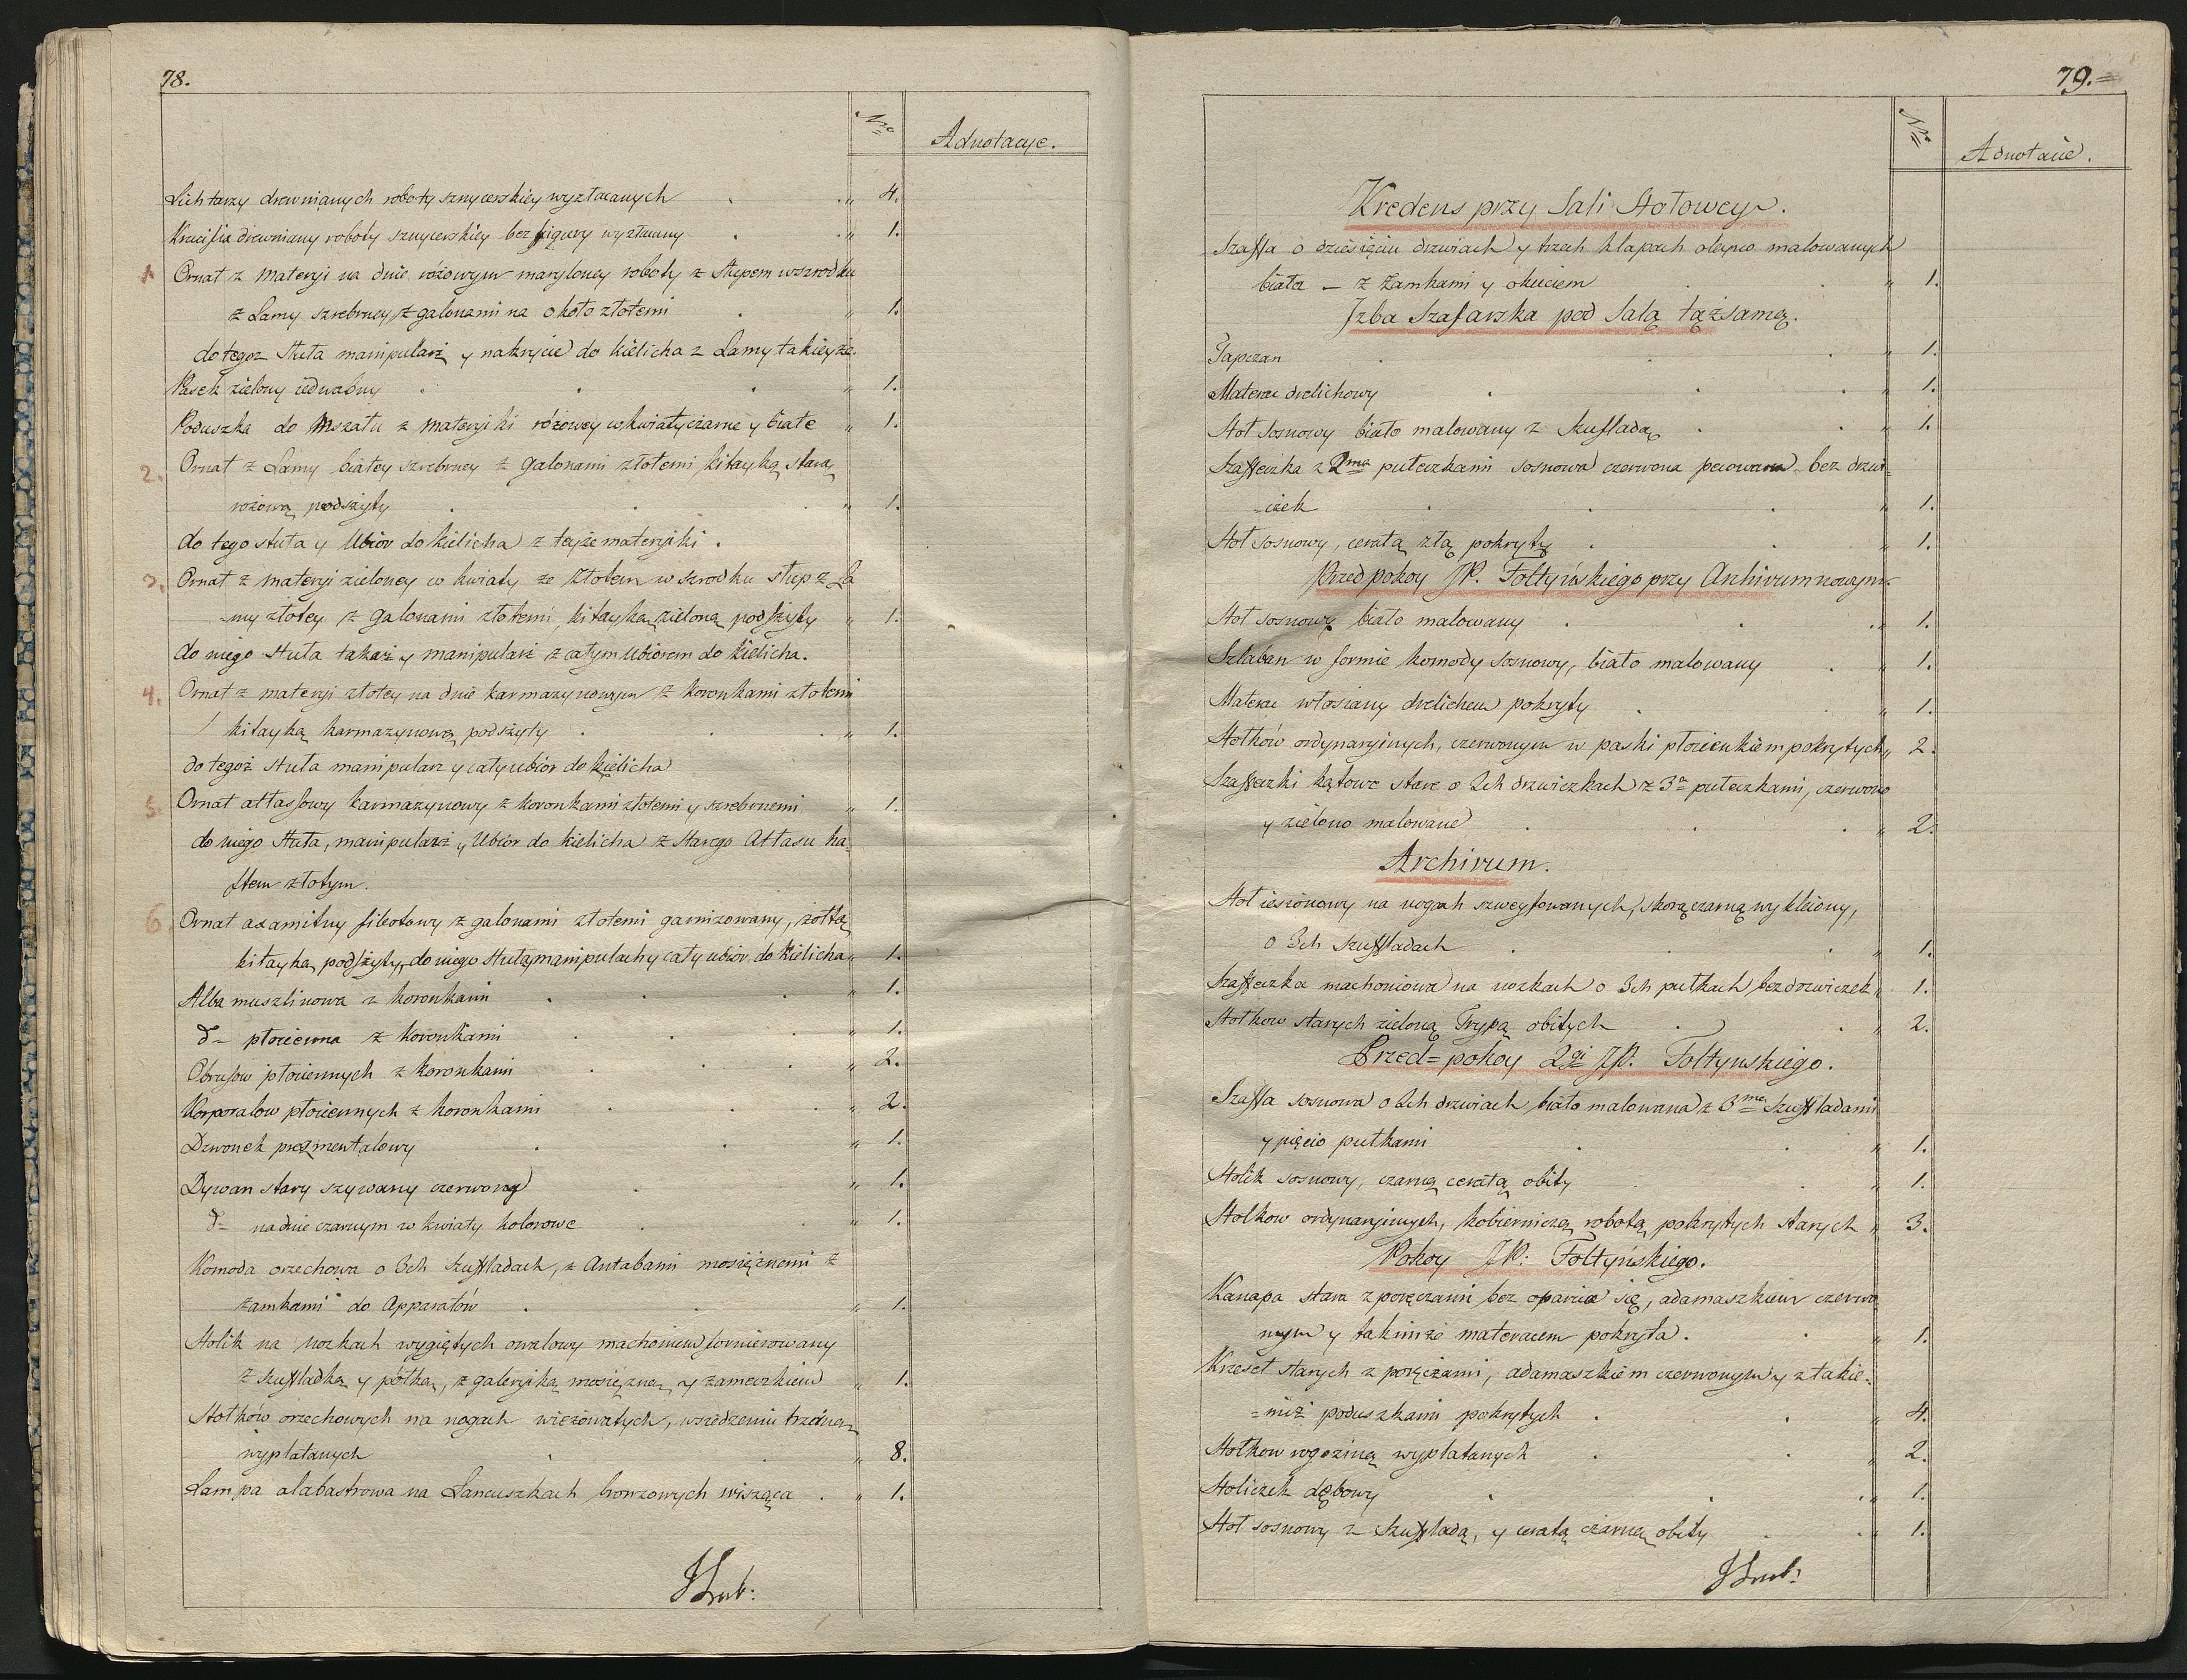 78.
Nro Adnotacye.
Lichtarzy drewnianych roboty sznycerskiey wyzłacanych " 4.
Krucifix drewniany roboty sznycerskiey bez figury wyzłacany " 1.
1. Ornat z materyi na dnie różowym roboty z Słupem wszrodku
z Lamy szrebrney, z galonami na około złotemi " 1.
do tegoz Stuła manipularz y nakrycie do kielicha z Lamy takieyże.
Pasek zielony iedwabny " 1.
Poduszka do Mszału z materyiki różowey w kwiaty czarne y białe " 1.
2. Ornat z Lamy białey szrebrney z galonami złotemi, kitayką starą
rożową podszyty " 1.
do tego stuła y Ubior do kielicha z teyże materyiki.
3. Ornat z materyi zieloney w kwiaty ze złotem w szrodku słup z La
-my złotey z galonami złotemi, kitayką zieloną podszyty " 1.
do niego Stuła takaż y manipularz z całym Ubiorem do kielicha.
4. Ornat z materyi złotey na dnie karmazynowym z koronkami złotemi
kitayką karmazynową podszyty " 1.
do tegoż stuła manipularz y cały ubiór do kielicha
5. Ornat attasowy karmazynowy z koronkami złotemi y szrebrnemi " 1.
do niego Stuła, manipularz y Ubiór do kielicha z Starego Attasu ha-
ftem złotym.
6 Ornat axamitny filiotowy z galonami złotemi garnizowany, żołtą
kitayką podszyty, do niego Stuła manipularz y cały ubior do kielicha " 1.
Alba muszlinowa z koronkami " 1.
d- płocienna z koronkami " 1.
Obrusow płociennych z koronkami " 2.
Korporalow płociennych z koronkami " 2.
Dzwonek przmentalowy " 1.
Dywan stary szywany czerwony " 1.
d- na dnie czarnym w kwiaty kolorowe " 1.
Komoda orzechowa o 3ch szufladach, z Antabami mosiężnemi z
zamkami do Apparatów " 1.
Stolik na nozkach wygiętych owalowy machoniem fornierowany
z szufladką y półką, z galeryiką mosiężną, y zameczkiem " 1.
Stołków orzechowych na nogach w siedzeniu trzciną
wyplatanych " 8.
Lampa alabastrowa na Łancuszkach bronzowych wisząca " 1.
79.
Nro Adnotacie.
Kredens przy Sali Stołowey.
Szaffa o dziesięciu drzwiach y trzech klapach oleyno malowanych
biała - z Zamkami y okuciem " 1.
Izba Szafarska pod Salą tąż samą.
Tapczan " 1.
Materac drelichowy " 1.
Stoł sosnowy biało malowany z szufladą " 1.
Szaffeczka z 2ma puteczkami sosnowa czerwona bez drzwi-
-czek " 1.
Stoł sosnowy, ceratą złą pokryty " 1.
Przedpokoy JP. Fołtyńskiego przy Archivum nowym
Stoł sosnowy biało malowany " 1.
Szlaban w formie komody sosnowy, biało malowany " 1.
Materac włosiany drelichem pokryty " 1.
Stołków ordynaryinych, czerwonym w paski płocienkiem pokrytych " 2.
Szaffeczki kątowe stare o 2ch drzwiczkach z 3a puteczkami, czerwono
y zielono malowane " 2.
Archivum.
Stoł iesionowy na nogach szweyfowanych, skorą czarną wykleiony,
o 3ch szufladach " 1.
Szaffeczka machoniowa na nozkach o 3ch putkach bez drzwiczek " 1.
Stołkow starych zieloną Trypą obitych " 2.
Przed=pokoy 2gi JP. Fołtynskiego.
Szaffa sosnowa o 2ch drzwiach biało malowana z 3ma szufladami
y pięcio putkami " 1.
Stolik sosnowy, czarną ceratą obity " 1.
Stołkow ordynaryinych, kobierniczą robotą pokrytych starych " 3.
Pokoy JP. Fołtyńskiego.
Kanapa stara z poręczami bez oparcia się, adamaszkiem czerwo
nym y takimże materacem pokryta. " 1.
Krzeseł starych z poręczami, adamaszkiem czerwonym y z takie-
=miż poduszkami pokrytych " 4.
Stołkow rogoziną wyplatanych " 2.
Stoliczek dębowy " 1.
Stoł sosnowy z szufladą, y ceratą czarną obity " 1.